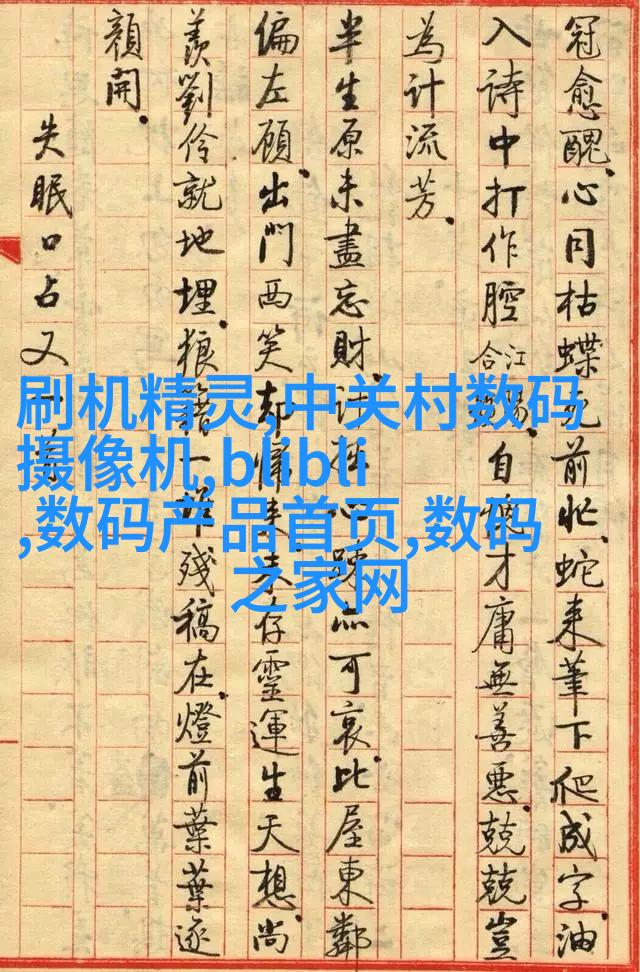 冠愈醜.心同枯蝶死前忙.蛇来筆下爬成字.油
入诗中打作腔合江自愧才庸無善惡.兢兢豈
為计流芳.
半生原未盡忘財.计拙心疎亦可哀.比屋東鄰
偏左顧.出門西笑却歸来.未存靈運生天想.尚
羡劉伶就地埋.狼籍一群殘稿在.燈前葉葉逐
顏開.
失眠口占又一
刷机精灵,中关村数码
摄像机,blibli
,数码产品首页,数码
之家网